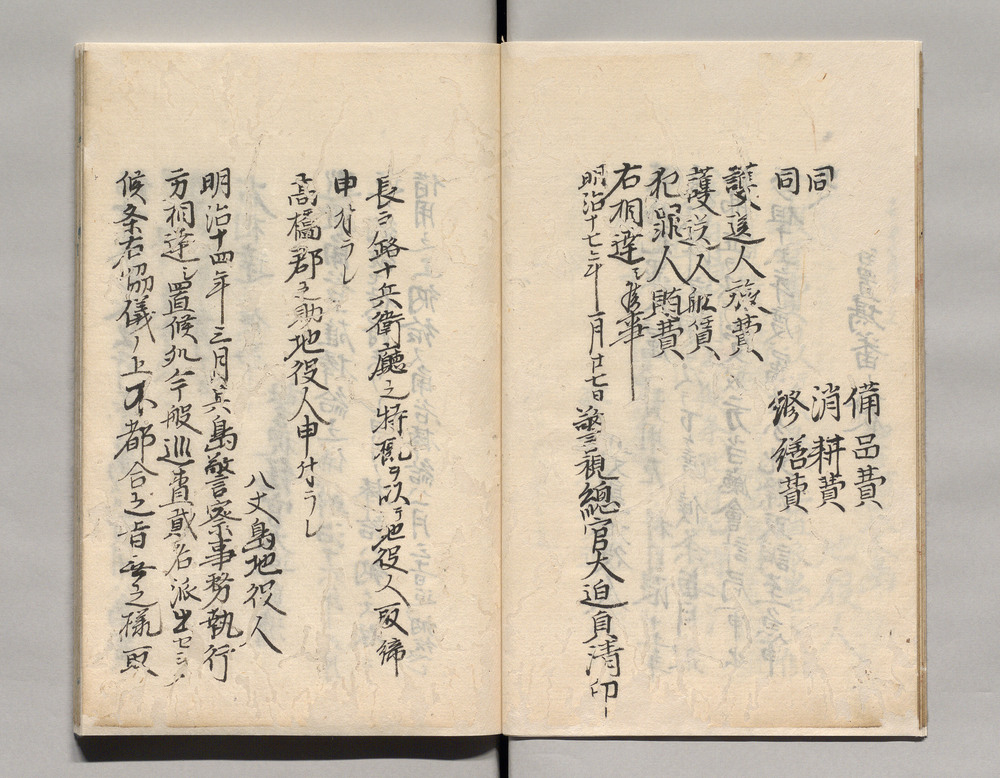 備品費
同 消耕費
同 修繕費
護送人旅費
護送人船賃
犯罪人賄費
右相達シ候事
明治十七年一月廿七日 警視總官大迫貞清印
長戸路十兵衛廳之特旨ヲ以テ地役人取締
申付ラレ
高橋郡之助地役人申付ラレ
八丈島地役人
明治十四年三月其島警察事務執行
方相達シ置候処今般巡査貮名派出セシメ
候条右協儀ノ上不都合之旨無之様取